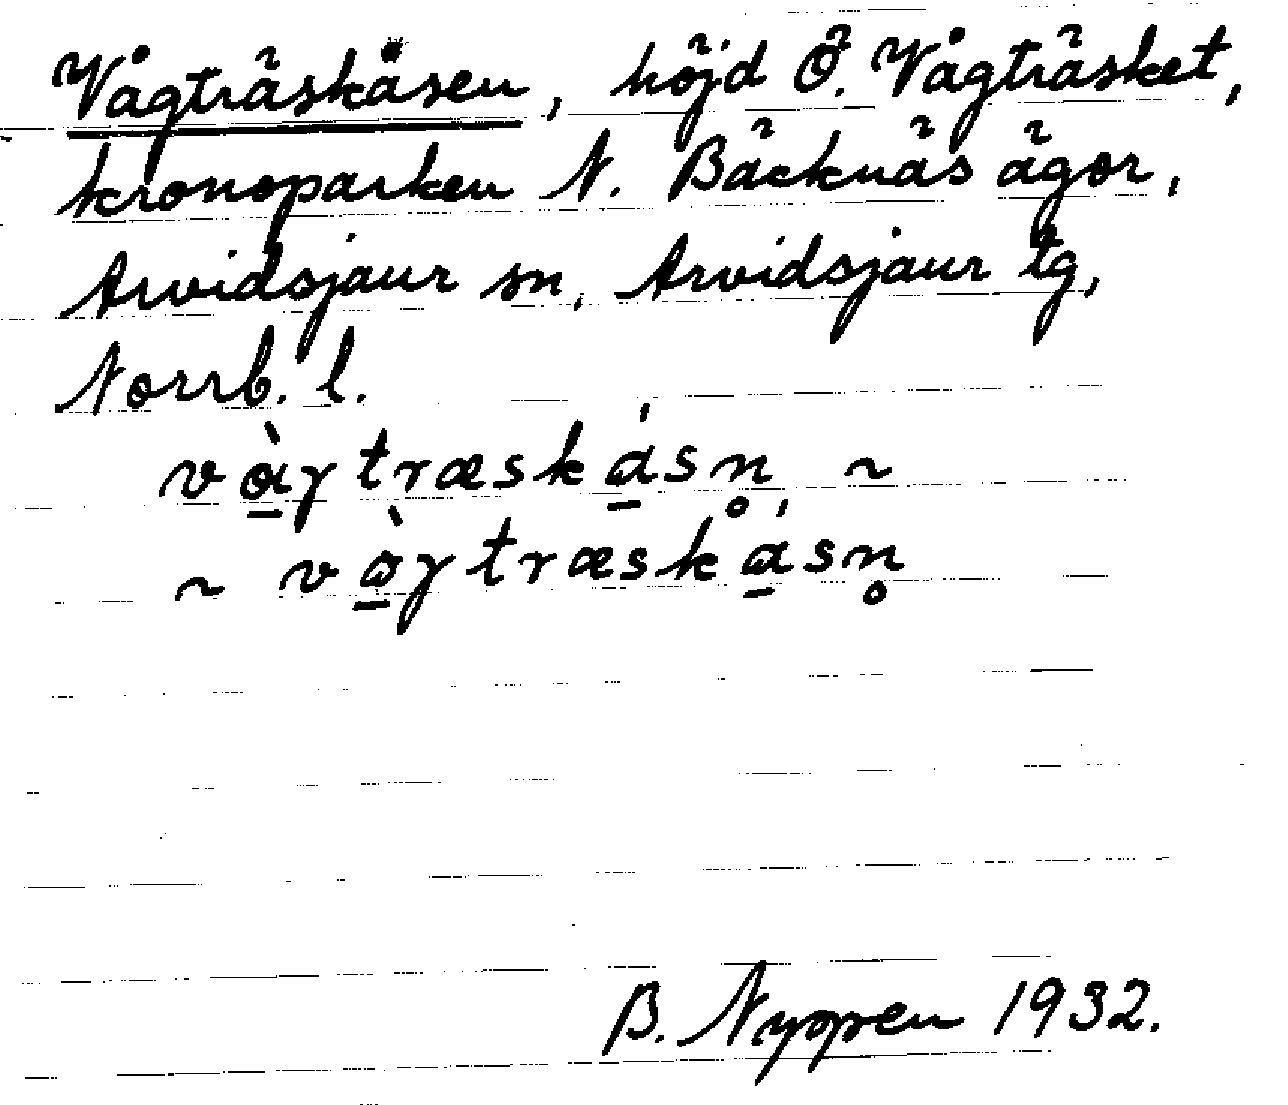 Vågträskåsen, höjd Ö. Vågträsket,
kronoparken N. Bäcknäs ägor,
Arvidsjaur sn, Arvidsjaur tg,
Norrb. l.
vo̱̊̀ɣtræskǻ̱sn̥ ~
~ vo̱̊̀ɣtræskǻ̱sn̥
B. Nyppen 1932.